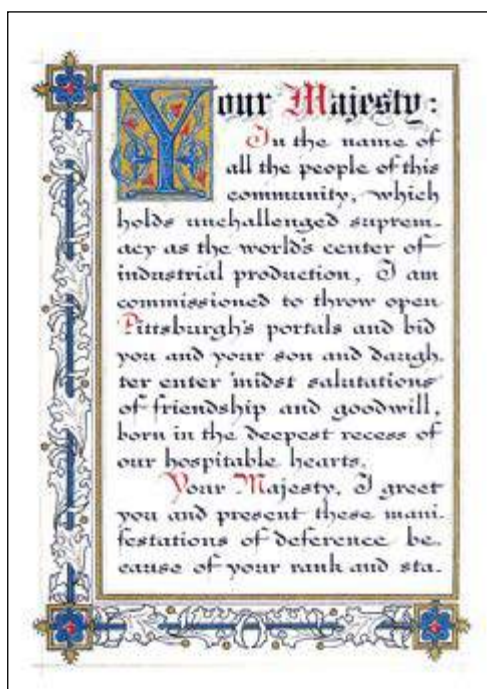 Your Majesty:
In the name of
all the people of this
community, which
holds unchallenged suprem-
acy as the world's center of
industrial production, I am
commissioned to throw open
Pittsburgh's portals and bid
you and your son and daugh-
ter enter 'midst salutations
of friendship and goodwill,
born in the deepest recess of
our hospitable hearts.
Your Majesty, I greet
you and present these mani-
festations of deference be-
cause of your rank and sta-